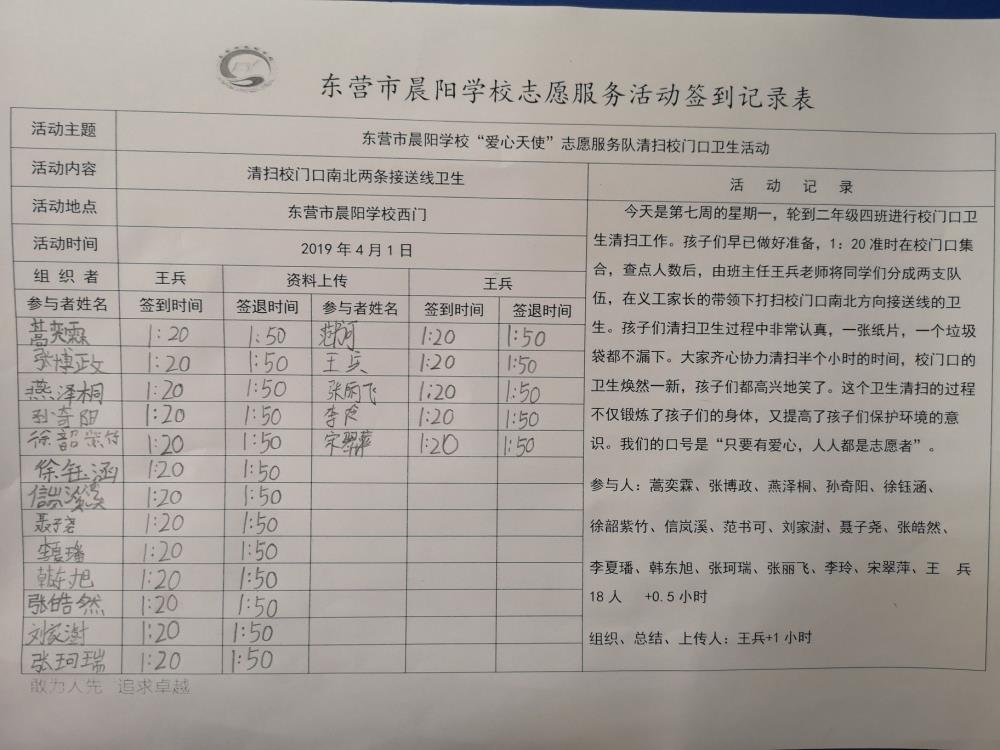 东营市晨阳学校志愿服务活动签到记录表
活动主题 东营市晨阳学校“爱心天使”志愿服务队清扫校门口卫生活动
活动内容 清扫校门口南北两条接送线卫生
活动地点 东营市晨阳学校西门
活动时间 2019 年 4 月 1 日
组织者 王兵 资料上传 王兵
参与者姓名 签到时间 签退时间 参与者姓名 签到时间 签退时间
蒿奕霖 1:20 1:50 范书可 1:20 1:50
张博政 1:20 1:50 王兵 1:20 1:50
燕泽桐 1:20 1:50 张丽飞 1:20 1:50
孙奇阳 1:20 1:50 李玲 1:20 1:50
徐韶紫竹 1:20 1:50 宋翠萍 1:20 1:50
徐钰涵 1:20 1:50
信岚溪 1:20 1:50
聂子尧 1:20 1:50
李夏璠 1:20 1:50
韩东旭 1:20 1:50
张皓然 1:20 1:50
刘家澍 1:20 1:50
张珂瑞 1:20 1:50
活动记录
今天是第七周的星期一，轮到二年级四班进行校门口卫
生清扫工作。孩子们早已做好准备，1：20 准时在校门口集
合，查点人数后，由班主任王兵老师将同学们分成两支队
伍，在义工家长的带领下打扫校门口南北方向接送线的卫
生。孩子们清扫卫生过程中非常认真，一张纸片，一个垃圾
袋都不漏下。大家齐心协力清扫半个小时的时间，校门口的
卫生焕然一新，孩子们都高兴地笑了。这个卫生清扫的过程
不仅锻炼了孩子们的身体，又提高了孩子们保护环境的意
识。我们的口号是“只要有爱心，人人都是志愿者”。
参与人：蒿奕霖、张博政、燕泽桐、孙奇阳、徐钰涵、
徐韶紫竹、信岚溪、范书可、刘家澍、聂子尧、张皓然、
李夏璠、韩东旭、张珂瑞、张丽飞、李玲、宋翠萍、王 兵
18 人 +0.5 小时
组织、总结、上传人：王兵+1 小时
敢为人先 追求卓越